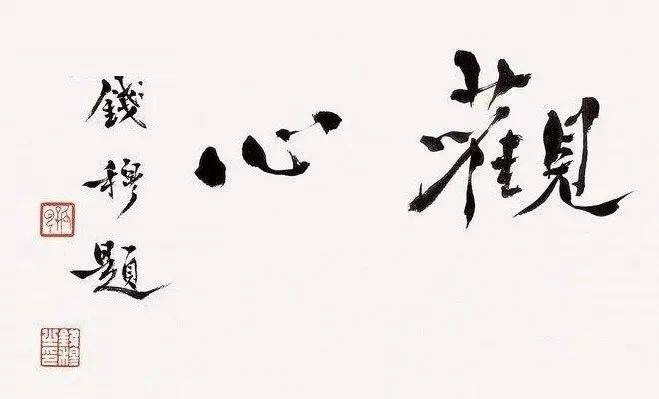 觀心
錢穆題
錢穆之印